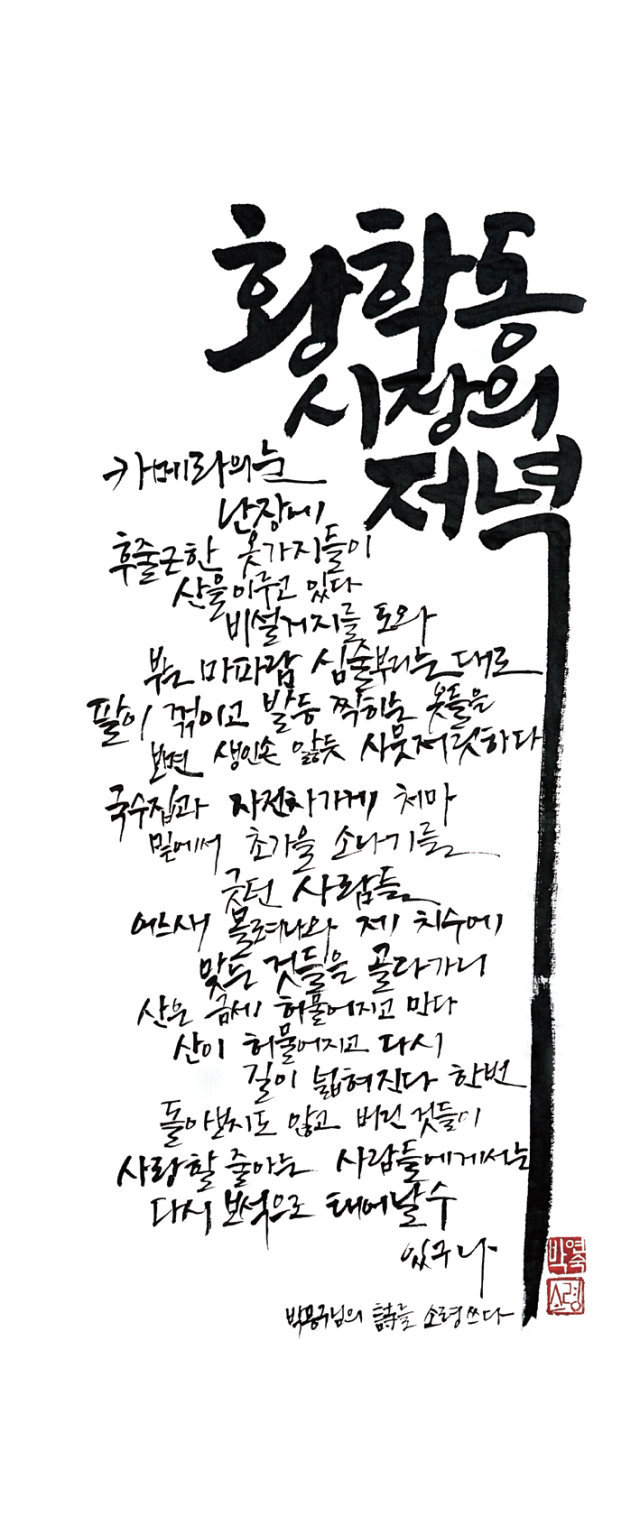 황학동
시장의
저녁
카메라의 눈
난장에
후줄근한 옷가지들이
산을 이루고 있다
비설거지를 도와
부는 마파람 심술부리는 대로
팔이 꺾이고 발등 찍히는 옷들을
보면 생인손 앓듯 사뭇 저릿하다
국수집과 자전차가게 처마
밑에서 초가을 소나기를
긋던 사람들
어느새 몰려나와 제 치수에
맞는 것들을 골라가니
산은 금세 허물어지고 만다
산이 허물어지고 다시
길이 넓혀진다 한번
돌아보지도 않고 버린 것들이
사랑할 줄 아는 사람들에게서는
다시 보석으로 태어날 수
있구나
박몽구님의 詩를 소령 쓰다
소령